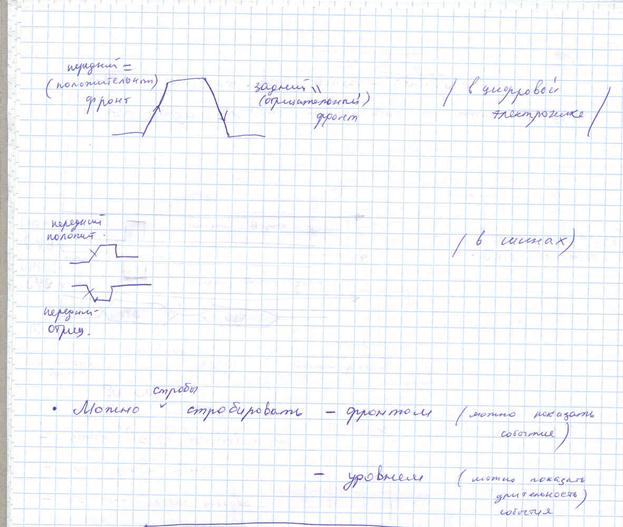 передний =
(положительный)
фронт
задний =
(отрицательный)
фронт
/ в цифровой
электронике /
передний
полож.
/ в шинах)
передний
отриц.
стробы
• Можно стробировать - фронтом (можно показать
события)
- уровнем (можно показать
длительность)
события